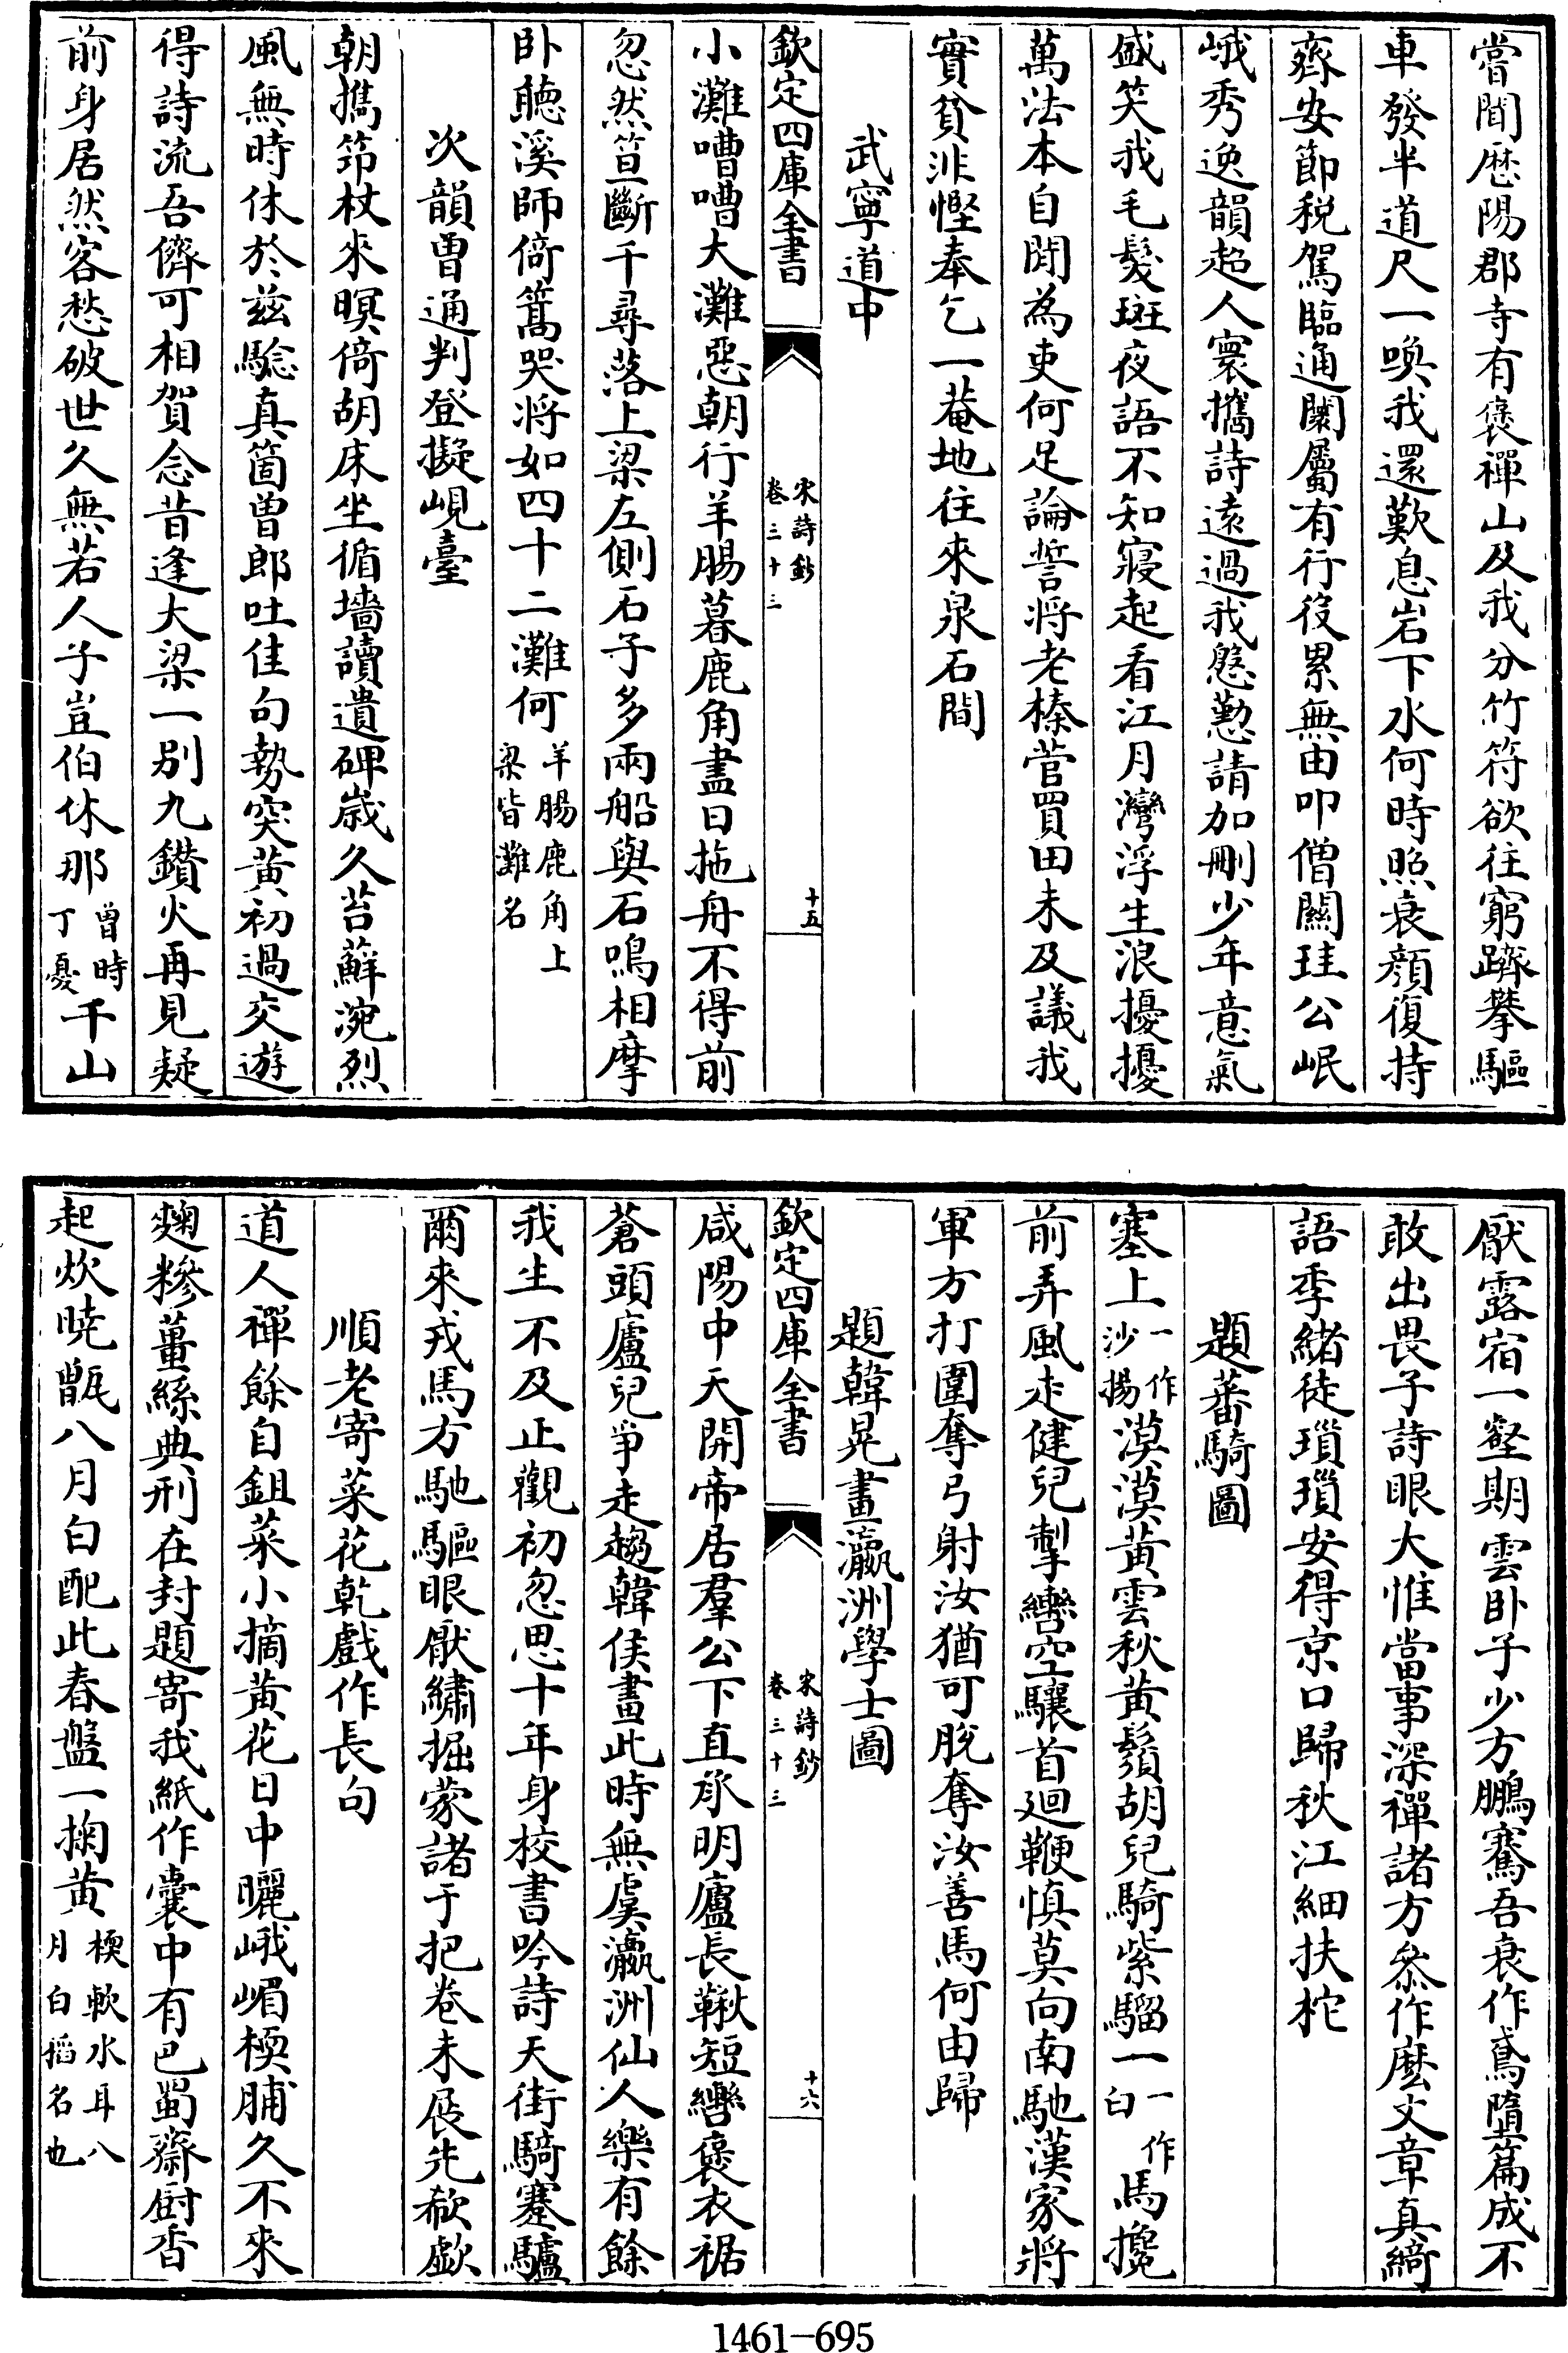 嘗聞歴陽郡寺有褒禪山及我分竹符欲往窮躋攀驅
車發半道尺一喚我還歎息岩下水何時照衰顔復持
齊安節税駕臨通闤屬有行役累無由叩僧關珪公岷
峨秀逸韻超人寰攜詩遠過我慇懃請加刪少年意氣
盛笑我毛髮斑夜語不知寢起看江月灣浮生浪擾擾
萬法本自閒為吏何足論誓將老榛菅買田未及議我
實貧非慳奉乞一菴地往來泉石間
武寧道中
欽定四庫全書
宋詩鈔
卷三十三
十五
小灘嘈嘈大灘惡朝行羊腸暮鹿角盡日拖舟不得前
忽然笪斷千尋落上梁左側石子多兩船與石鳴相摩
卧聽溪師倚篙哭將如四十二灘何羊腸鹿角上梁皆灘名
次韻曽通判登擬峴臺
朝攜笻杖來暝倚胡床坐循墻讀遺碑嵗久苔蘚涴烈
風無時休於兹驗真箇曽郎吐佳句勢突黄初過交遊
得詩流吾儕可相賀念昔逢大梁一别九鑽火再見疑
前身居然客愁破世久無若人子豈伯休那曽時丁憂千山
厭露宿一壑期雲卧子少方鵬騫吾衰作鳶墮篇成不
敢出畏子詩眼大惟當事深禪諸方叅作麽文章真綺
語季緒徒瑣瑣安得京口歸秋江細扶柁
題蕃騎圖
塞上一作沙揚漠漠黄雲秋黄鬚胡兒騎紫騮一一作白馬攙
前弄風走健兒掣轡空驤首廻鞭慎莫向南馳漢家將
軍方打圍奪弓射汝猶可脱奪汝善馬何由歸
題韓晃畫瀛洲學士圖
欽定四庫全書
宋詩鈔
卷三十三
十六
咸陽中天開帝居羣公下直承明廬長鞦短轡褒衣裾
蒼頭廬兒爭走趨韓侯畫此時無虞瀛洲仙人樂有餘
我生不及正觀初忽思十年身校書吟詩天街騎蹇驢
爾來戎馬方馳驅眼厭繡掘蒙諸于把卷未展先欷歔
順老寄菜花乾戲作長句
道人禪餘自鉏菜小摘黄花日中曬峨嵋楔脯久不來
麴糝薑絲典刑在封題寄我紙作囊中有巴蜀齋厨香
起炊曉甑八月白配此春盤一掬黄楔軟水耳八月白稻名也
1461-695